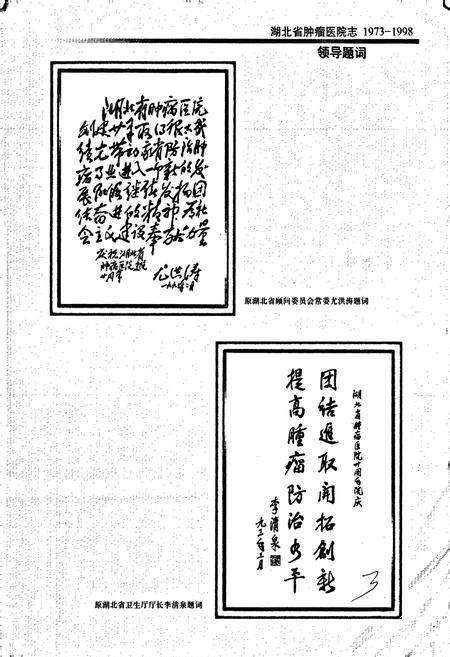 湖北省肿瘤医院志 1973-1998
领导题词
湖北省肿瘤医院
创建廿年取得很大成
绩尤带动我省防治肿
瘤事业进入一个新的发
展阶段继续发扬团
结奋进的精神为社
会主义建设奉献力量
庆祝湖北省
肿瘤医院建院
廿周年
尤洪涛
一九九三年二月
原湖北省顾问委员会常委尤洪涛题词
湖北省肿瘤医院廿周年院庆
团结進取開拓創新
提高腫瘤防治水平
李清泉
九三年三月
3
原湖北省卫生厅厅长李清泉题词